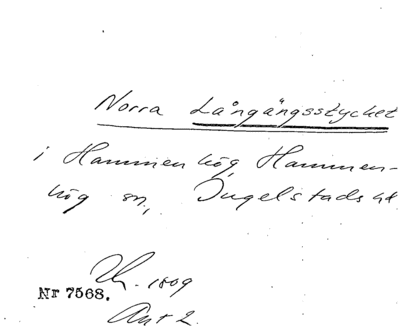 Norra Långängsstycket
i Hammenhög, Hammen-
hög sn, Ingelstads hd.
1809
Nr 7568.
Akt 2